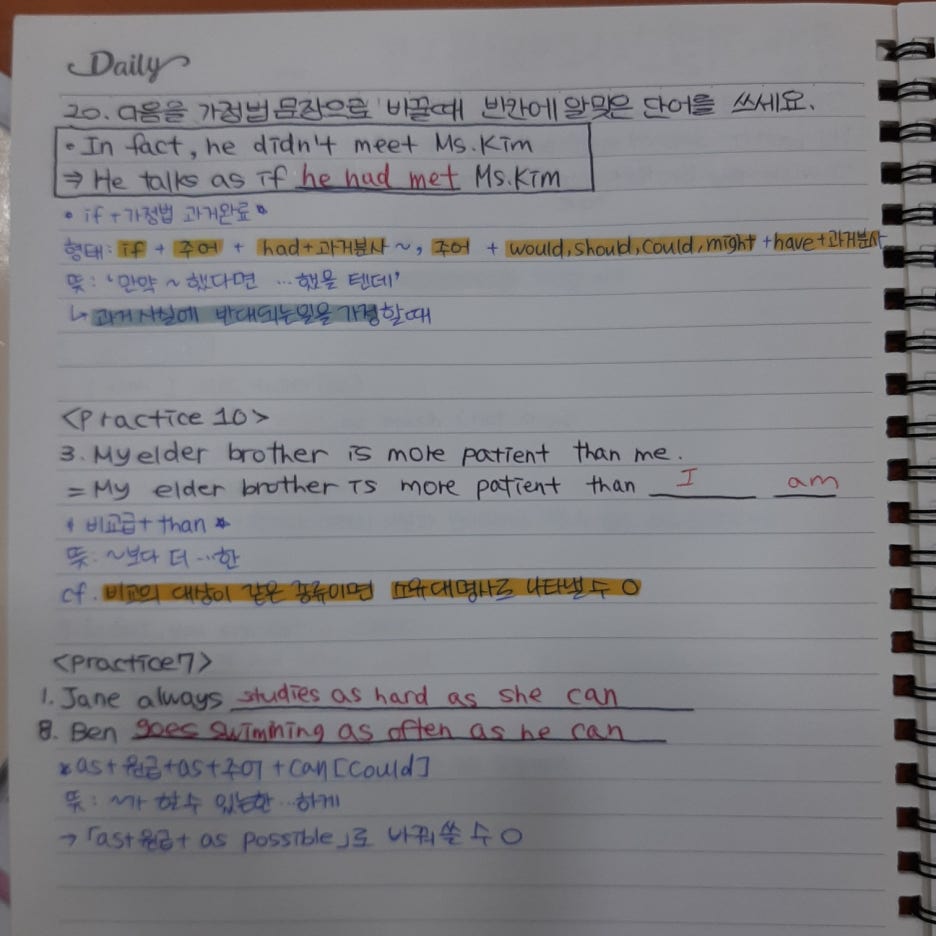 Daily
20. 다음을 가정법 문장으로 바꿀때 빈칸에 알맞은 단어를 쓰세요.
• In fact, he didn't meet Ms.Kim
⇒ He talks as if he had met Ms.Kim
* if + 가정법 과거완료 *
형태: if + 주어 + had+과거분사 ~, 주어 + would, should, could, might + have + 과거분사
뜻: '만약 ~ 했다면 …했을 텐데'
↳ 과거사실에 반대되는일을 가정할때
<Practice 10>
3. My elder brother is more patient than me.
= My elder brother is more patient than I am
* 비교급 + than *
뜻: ~보다 더 …한
cf. 비교의 대상이 같은 종류이면 소유대명사로 나타낼 수 O
<Practice7>
1. Jane always studies as hard as she can
8. Ben goes swimming as often as he can
* as+원급+as+주어 + can [could]
뜻: ~가 할수 있는한 …하게
→ 「as+원급+ as possible」로 바꿔 쓸 수 O